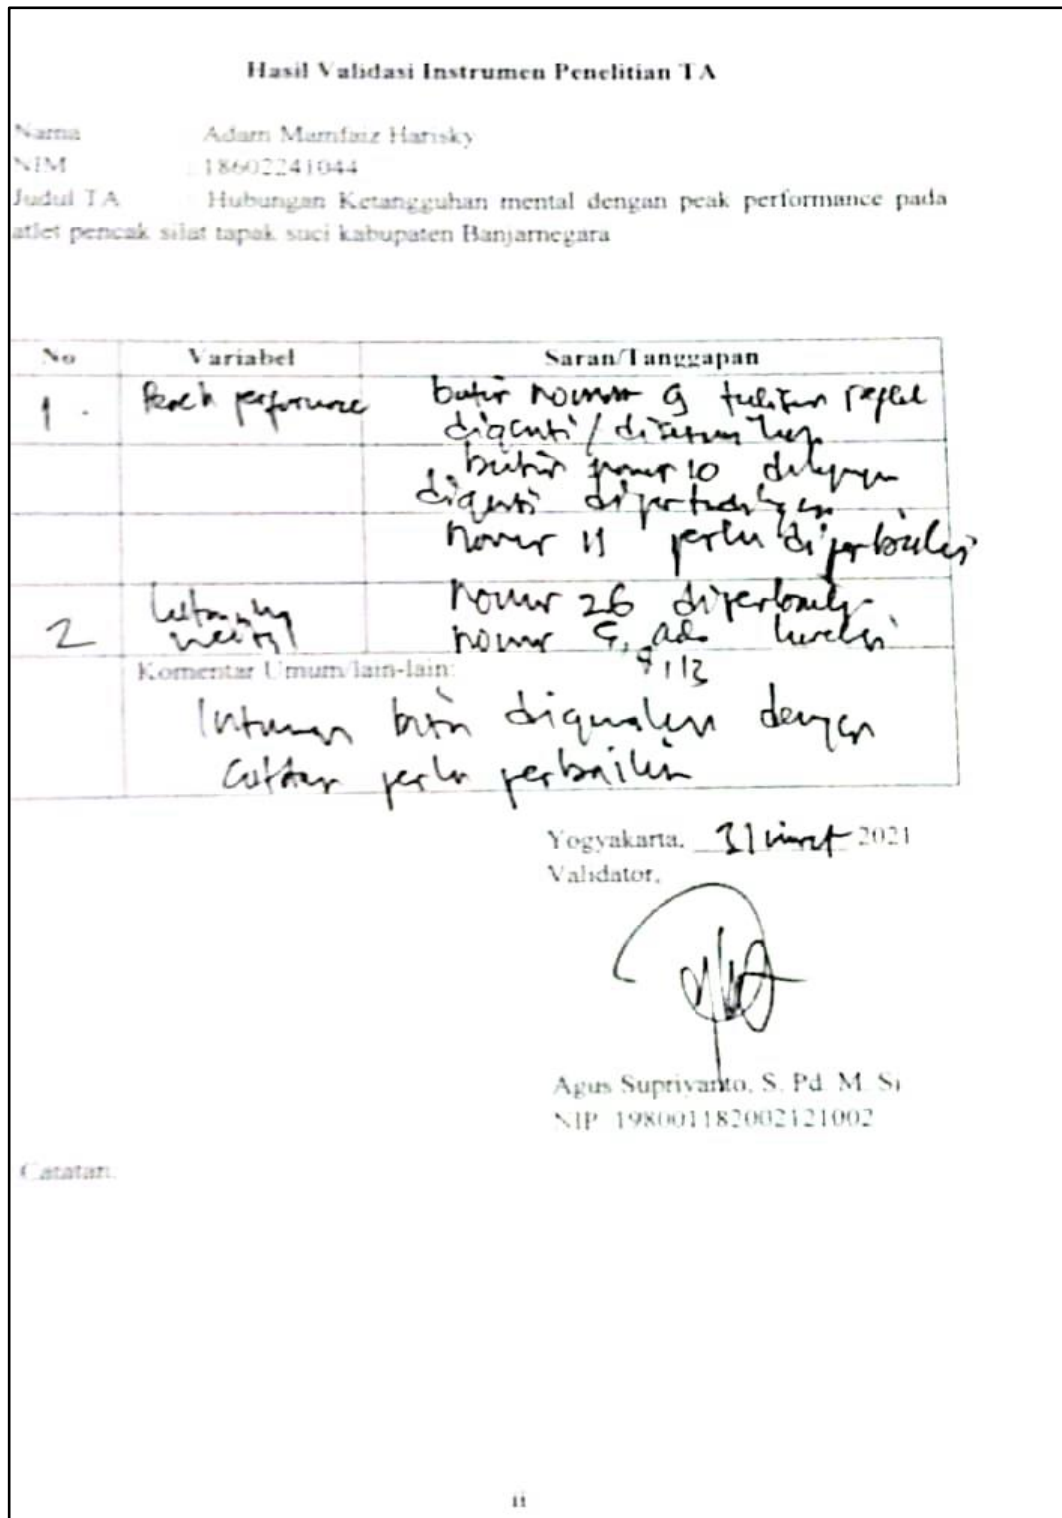 Hasil Validasi Instrumen Penelitian TA
Nama : Adam Mamfaiz Harisky
NIM : 18602241044
Judul TA : Hubungan Ketangguhan mental dengan peak performance pada
atlet pencak silat tapak suci kabupaten Banjarnegara
No Variabel Saran/Tanggapan
1. Peack performance butir nomor 9 tulisan
diganti /
butir nomor 10
diganti dipertandingan
Nomor 11 perlu diperbaiki
2 mental Nomor 26 diperbaiki
nomor ada koreksi
9, 13
Komentar Umum/lain-lain:
Instrumen bisa digunakan dengan
catatan perlu perbaikan
Yogyakarta, 31 maret 2021
Validator,
Agus Supriyanto, S. Pd. M. Si
NIP. 198001182002121002
Catatan:
ii